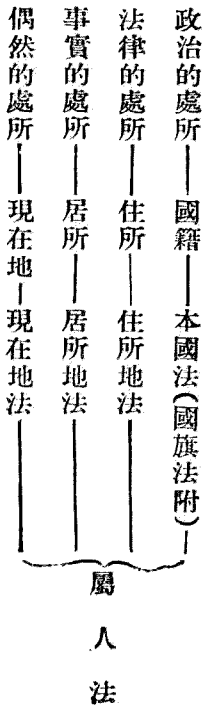 政治的處所——國籍——本國法(國旗法附)—
法律的處所——住所——住所地法——
事實的處所——居所——居所地法——
偶然的處所——現在地—現在地法——
屬人法